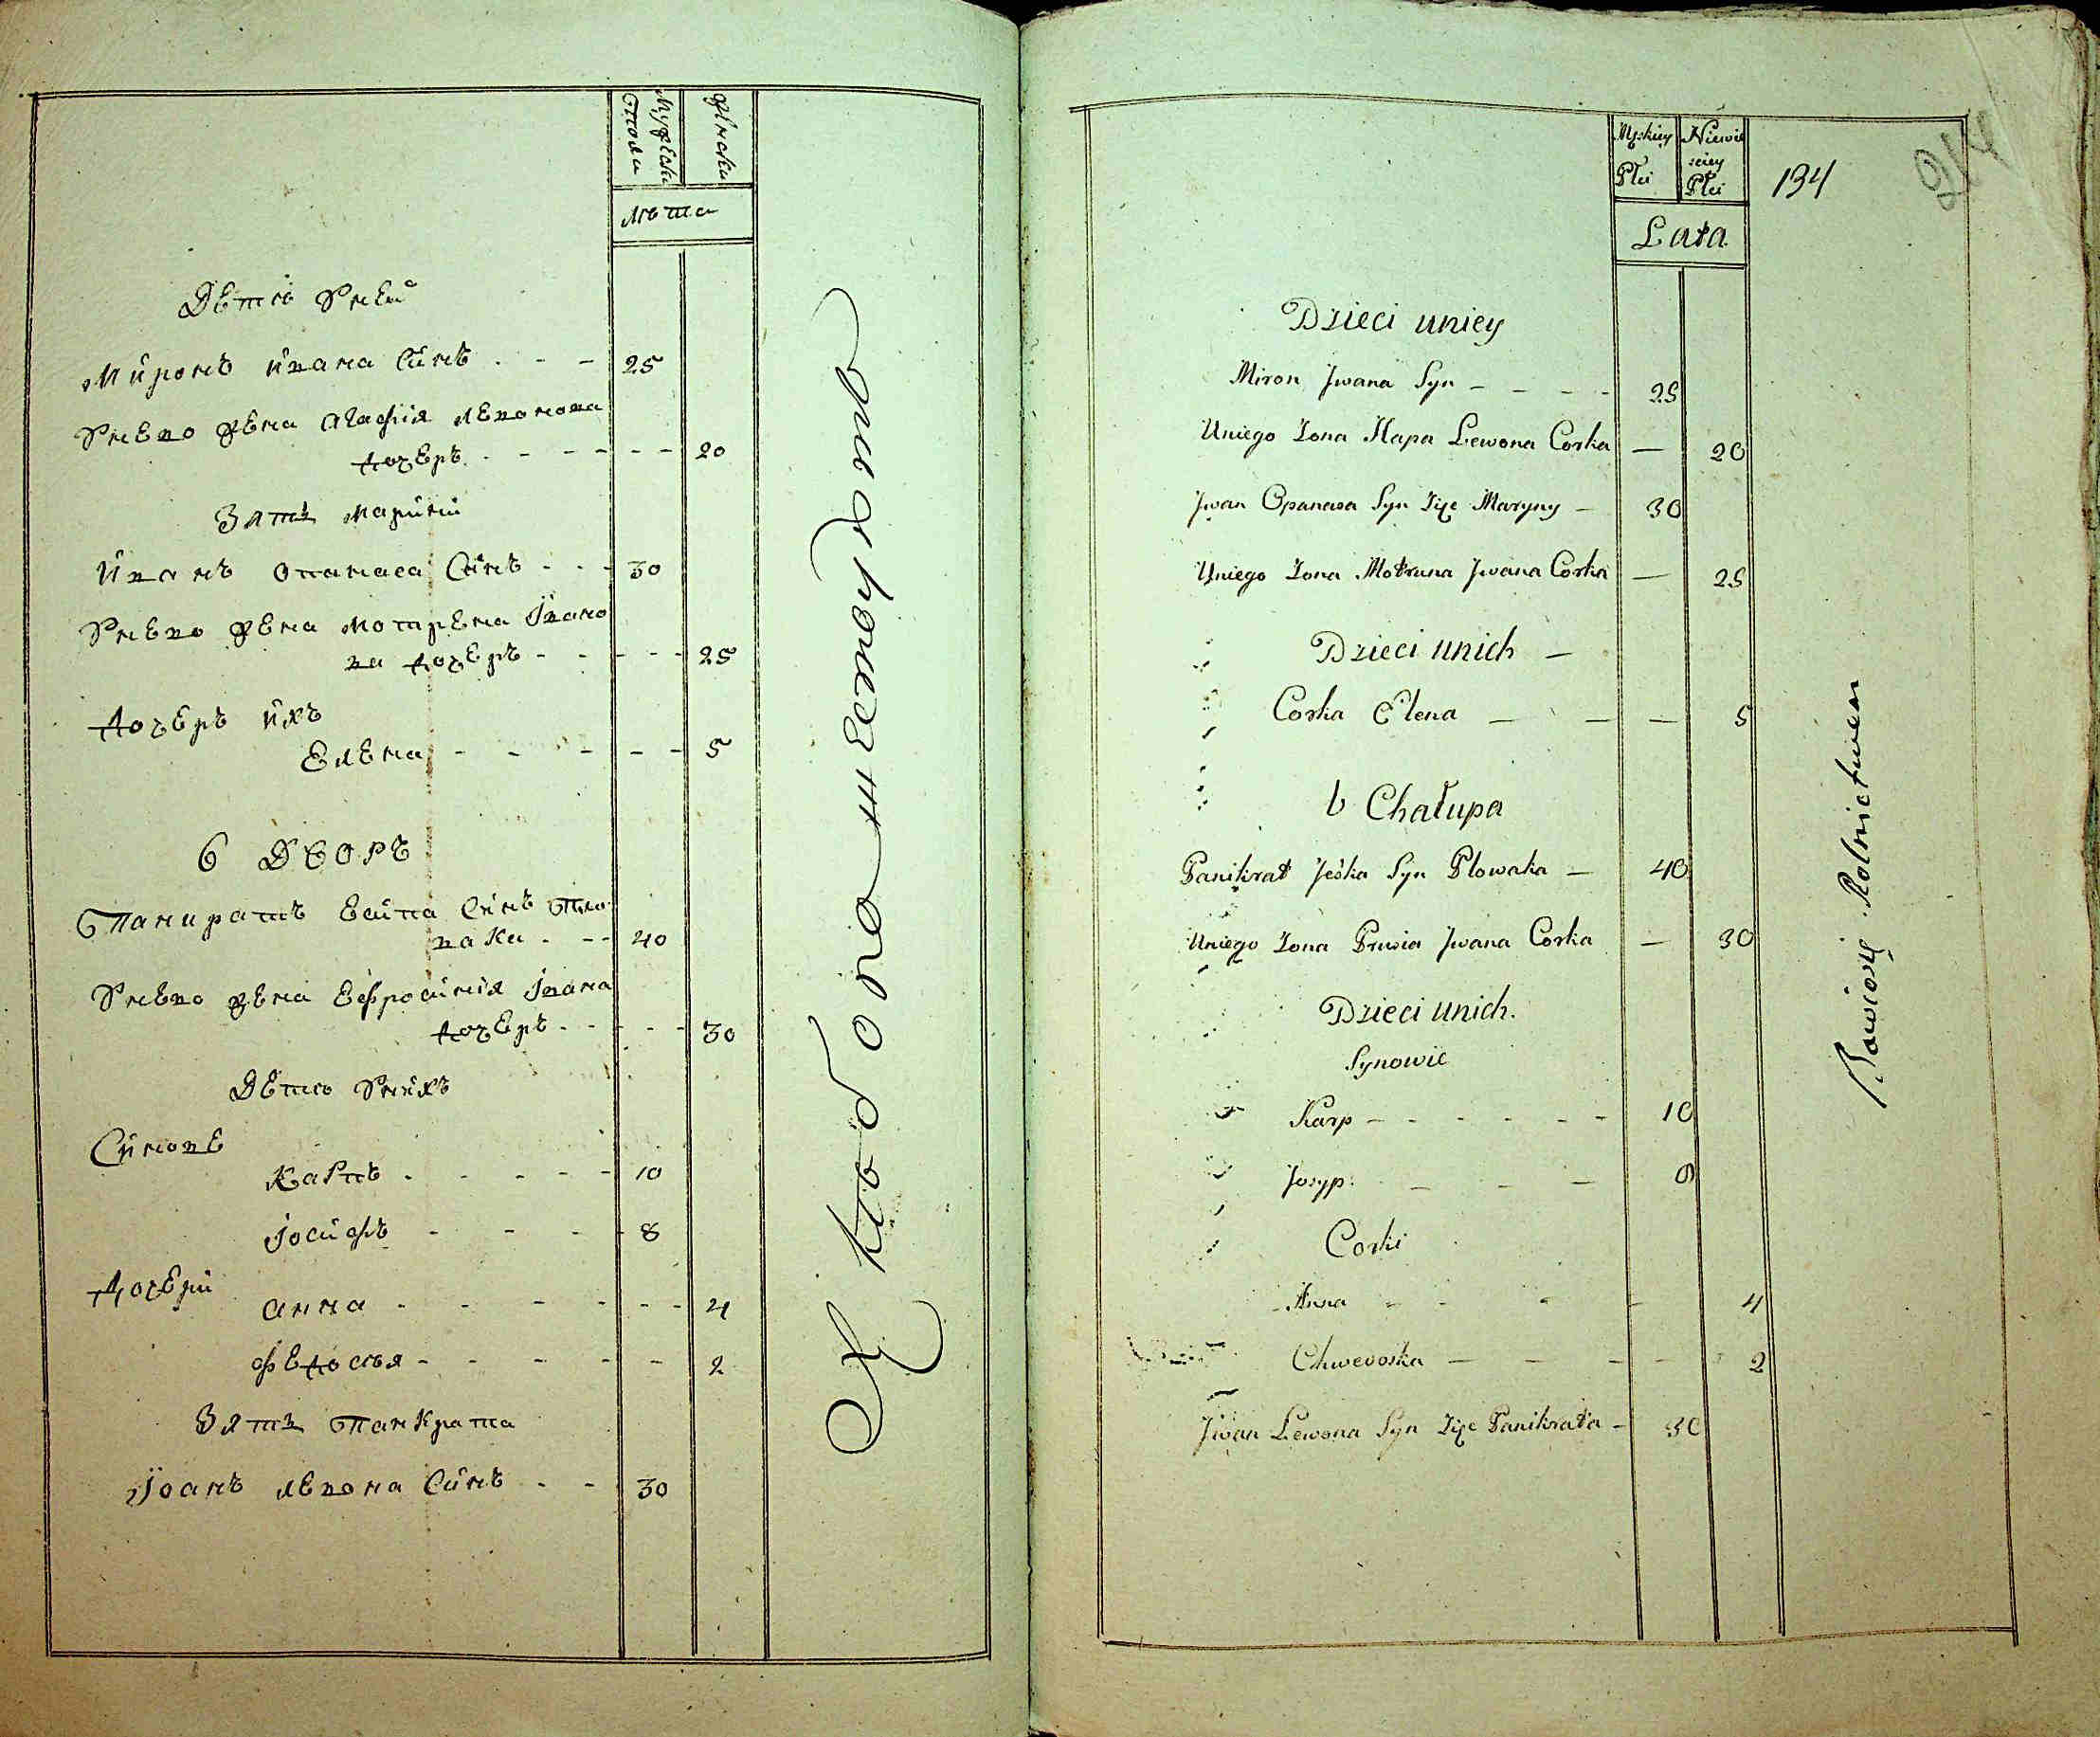 Мужеска
Полу
Женска
Лѣта
Дети Ꙋнеи
Миронъ ивана Синъ - - - 25
Ꙋнево жена Агафия левонова
дочеръ - - - - - - 20
Зять марини
Иванъ опанаса Синъ - - - 30
Ꙋнево жена мотрена Ивано
ва дочеръ - - - - - 25
Дочеръ ихъ
Елена - - - - - 5
6 Дворъ
Панкратъ есипа Синъ Пло
вака - - - 40
Ꙋнево жена Ефросиния Ивана
дочеръ - - - - 30
Дети Ꙋнихъ
Синове
Карпъ - - - - - 10
Иосифъ - - - - 8
Дочери
анна - - - - - - 4
федосия - - - - - 2
Зять Панкрата
Иоанъ левона Синъ - - 30
Męskiey
Płci
Niewie
sciey
Płci
134
214
Lata
Dzieci uniey
Miron Jwana Syn - - - - 25
Uniego Zona Hapa Lewona Corka — 20
Jwan Opanasa Syn Zięc Maryny — 30
Uniego Zona Motruna Jwana Corka — 25
Dzieci unich —
Corka Elena — — — 5
6 Chałupa
Panikrat Jeśka Syn Plowaka — 40
Uniego Zona Prusia Jwana Corka — 30
Dzieci unich.
Synowie
Karp - - - - - - 10
Josyp. - - - 8
Corki
Anna - - - - 4
Chwedoska — — — — 2
Jwan Lewona Syn Zięc Panikrata — 30
Bawiący Rolnictwem